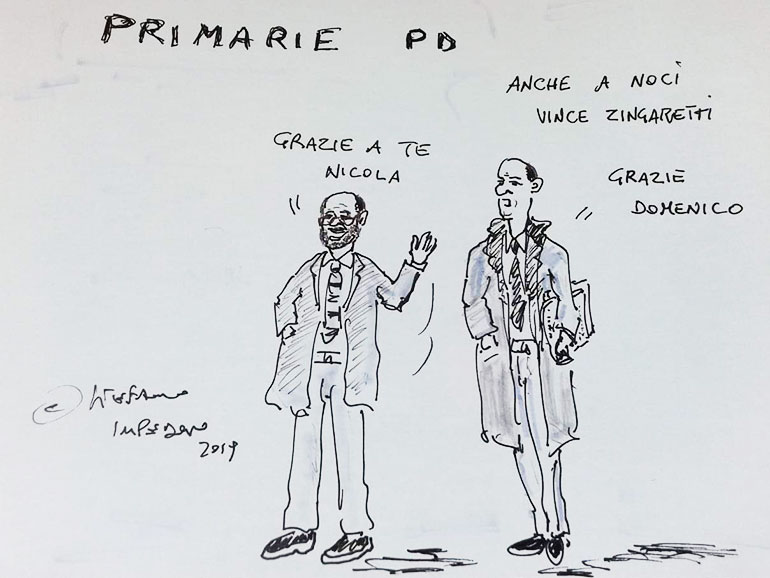 PRIMARIE PD
ANCHE A NOCI
VINCE ZINGARETTI
GRAZIE A TE
NICOLA
GRAZIE
DOMENICO
© Stefano
2019